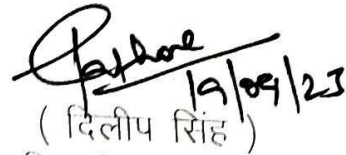 Rathore
19/09/23
( दिलीप सिंह )